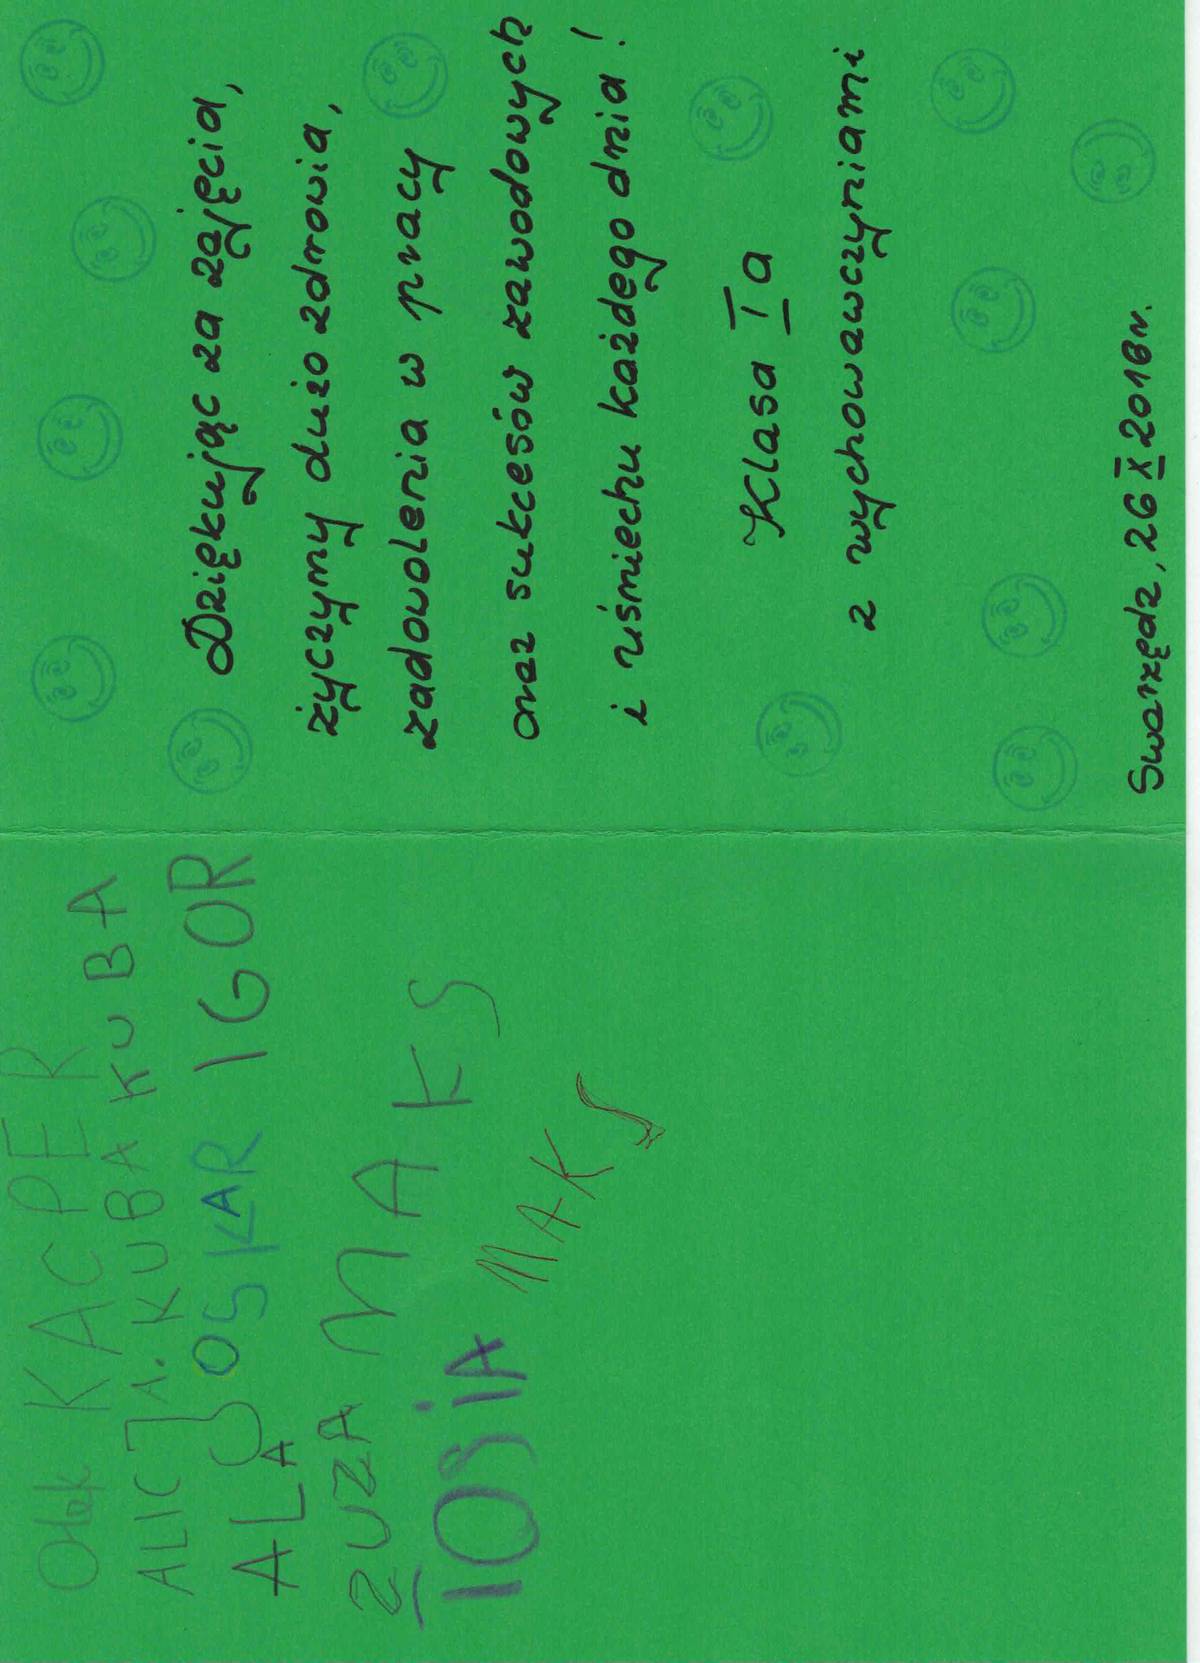 Olek KACPER
ALICJA. KUBA KUBA
ALA OSKAR IGOR
ZUZA MAKS
TOSiA MAKS
Dziękując za zajęcia,
życzymy dużo zdrowia,
zadowolenia w pracy
oraz sukcesów zawodowych
i uśmiechu każdego dnia!
Klasa I a
z wychowawczyniami
Swarzędz, 26 X 2018r.